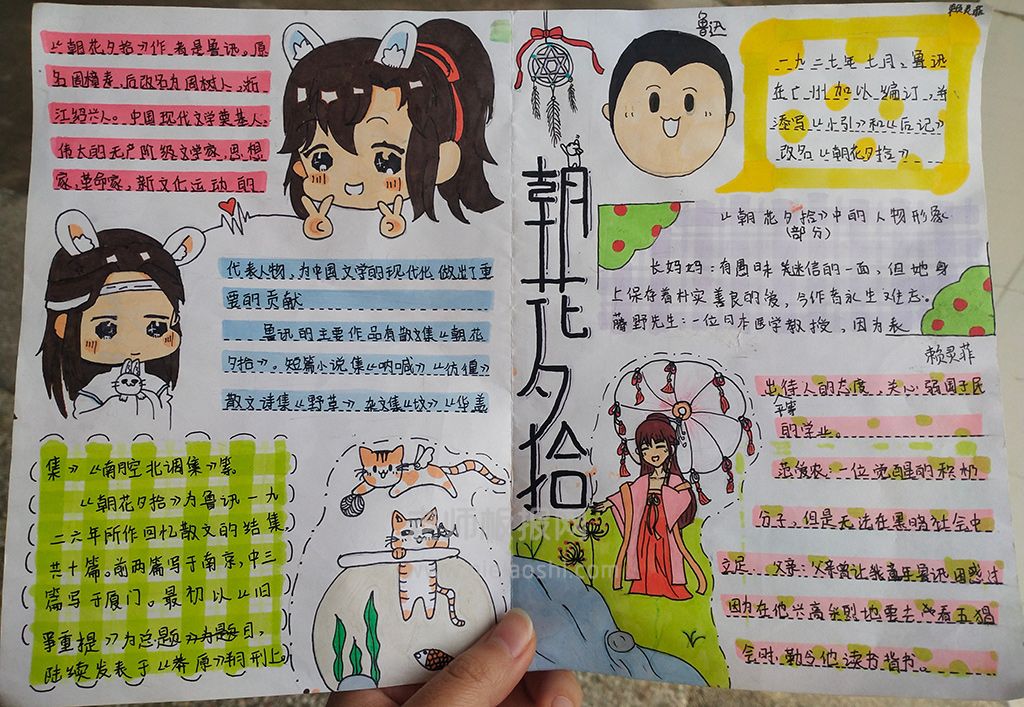 《朝花夕拾》作者是鲁迅。原
名周樟寿,后改名为周树人,浙
江绍兴人。中国现代文学奠基人.
伟大的无产阶级文学家.思想
家.革命家。新文化运动的
代表人物,为中国文学的现代化做出了重
要的贡献
鲁迅的主要作品有散文集《朝花
夕拾》。短篇小说集《呐喊》《彷徨》
散文诗集《野草》杂文集《坟》《华盖
集》《南腔北调集》等。
《朝花夕拾》为鲁迅一九
二六年所作回忆散文的结集,
共十篇。前两篇写于南京,中三
篇写于厦门。最初以《旧
事重提》为总题为题目,
陆续发表于《莽原》期刊上
朝花夕拾
鲁迅
赖灵菲
一九二七年七月,鲁迅
在广州加以编订,并
添写《小引》和《后记》
改名《朝花夕拾》
《朝花夕拾》中的人物形象
(部分)
长妈妈:有愚昧迷信的一面,但她身
上保存着朴实善良的爱,令作者永生难忘。
藤野先生:一位日本医学教授,因为表
赖灵菲
出待人的态度,关心弱国子民
平等
的学业。
范爱农:一位觉醒的知识
分子,但是无法在黑暗社会中
立足 父亲:父亲曾让我童年鲁迅困惑过
因为在他兴高采烈地要去看五猖
会时,勒令他读书背书。
老师板报网